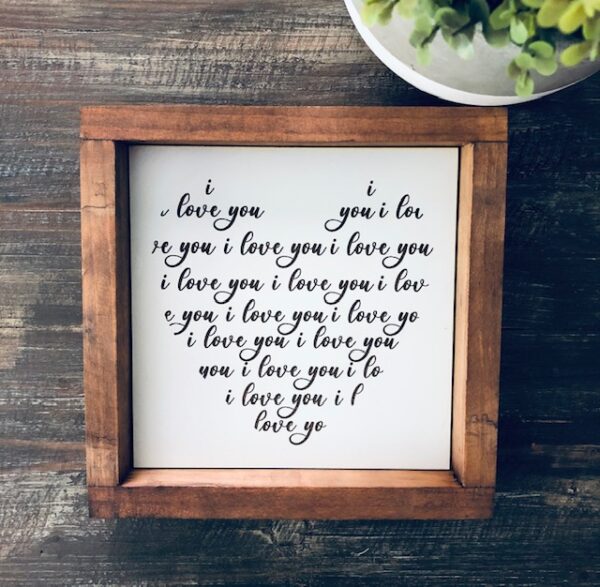 i i
love you you i lov
ve you i love you i love you
i love you i love you i lov
e you i love you i love yo
i love you i love you
you i love you i lo
i love you i l
love yo